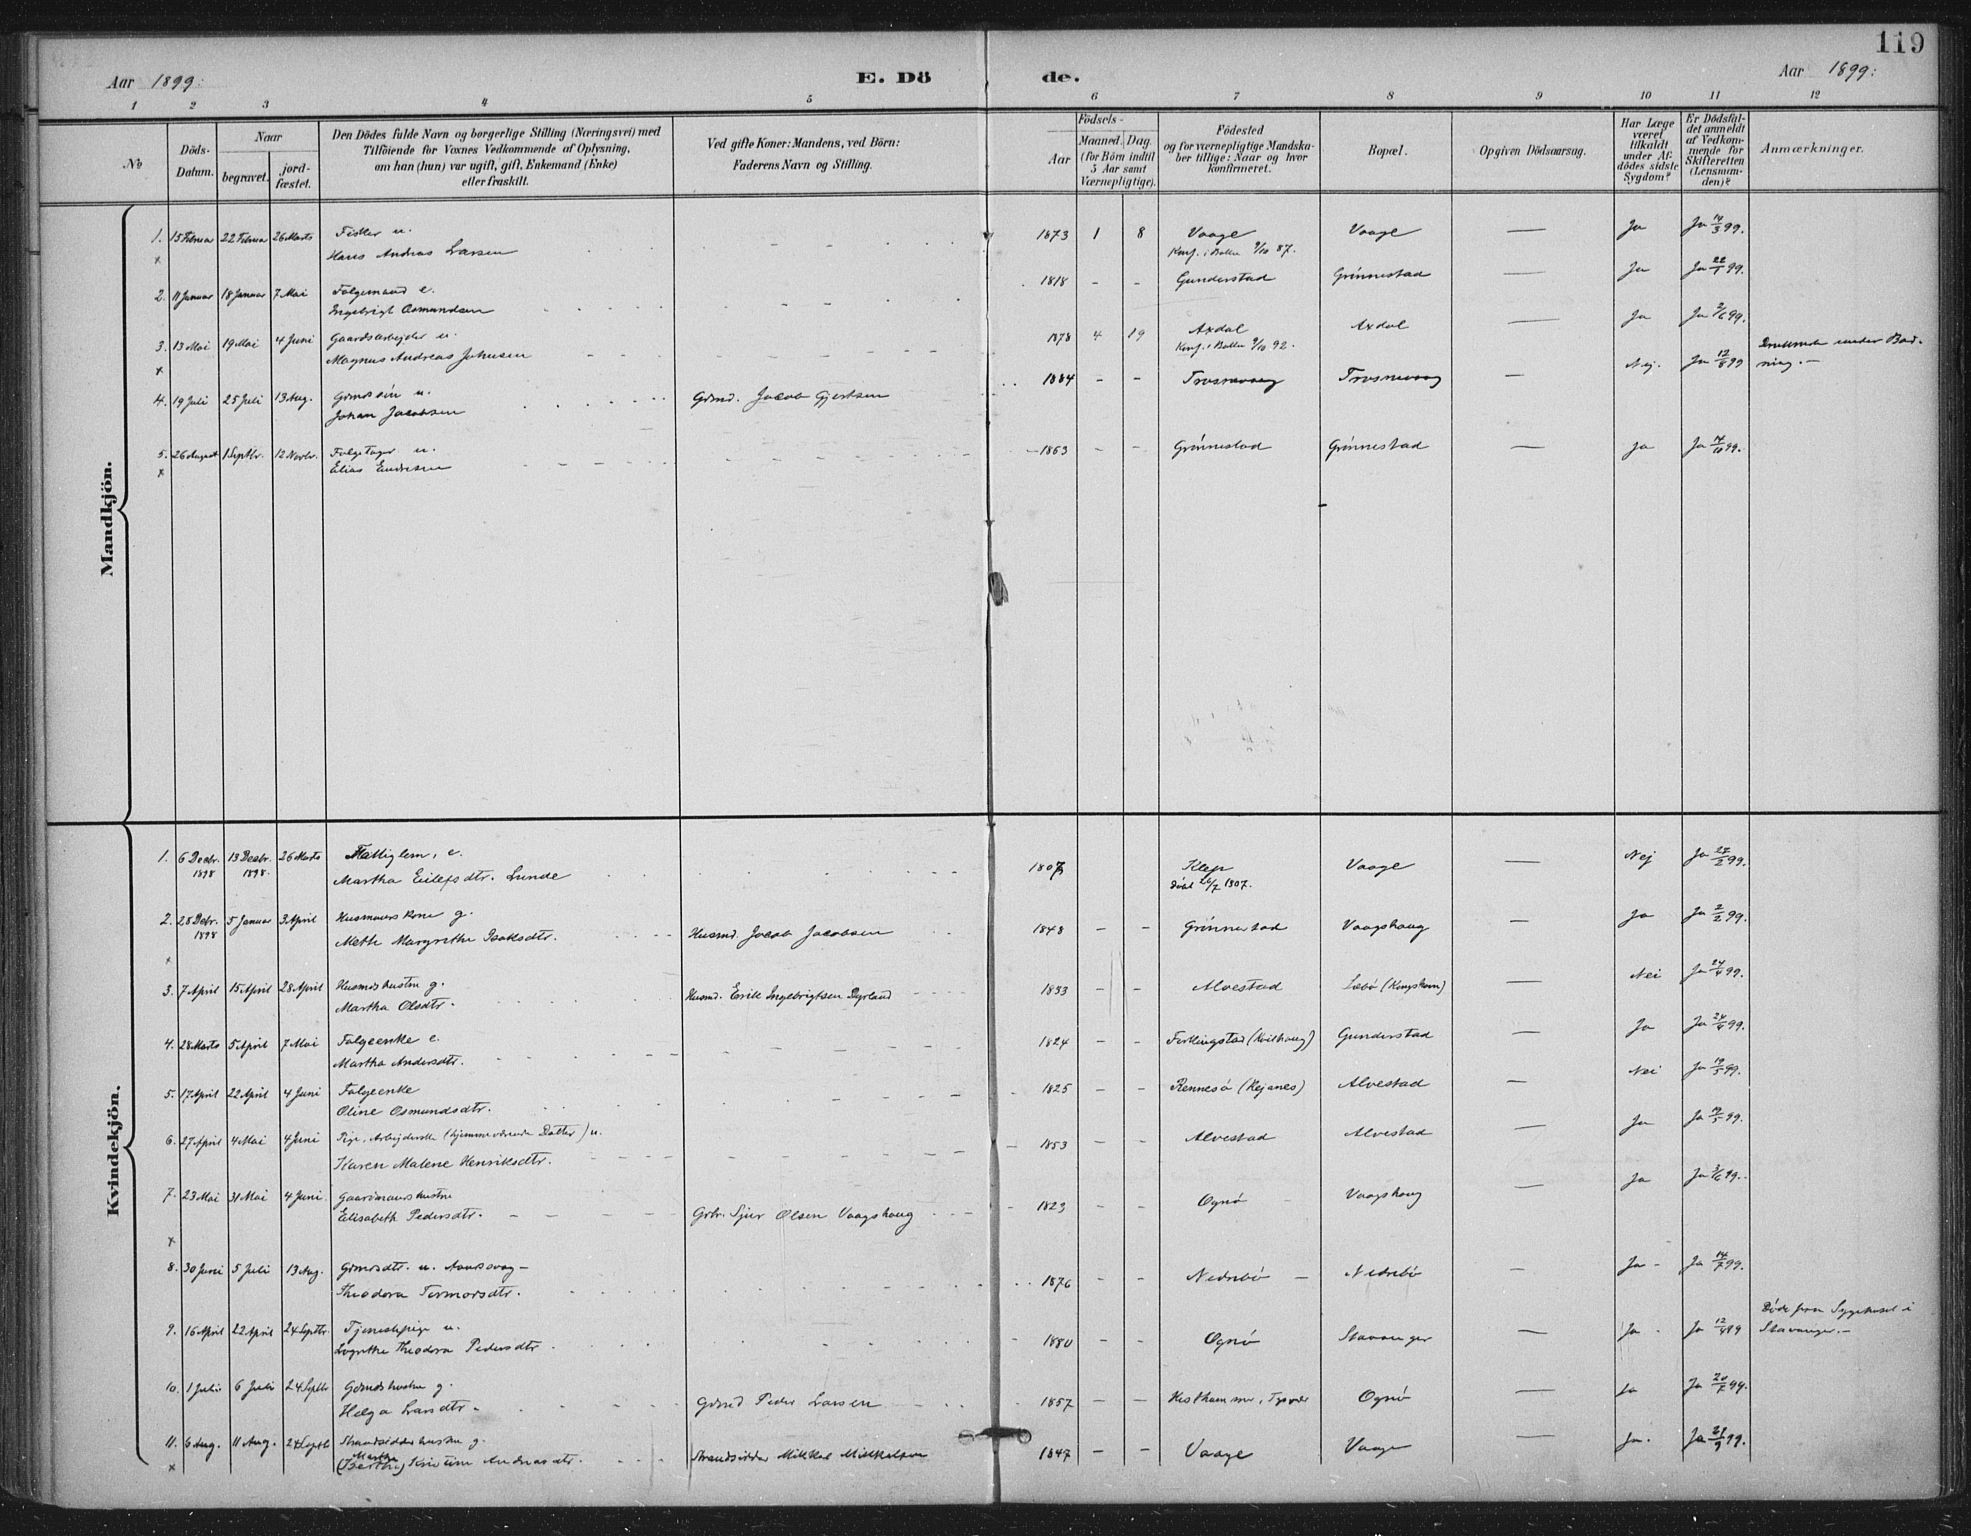 119
Aar 1899. E. Dö de. Aar 1899.
1 2 3 4 5 6 7 8 9 10 11 12
No
Döds-Datum.
Naar
begravet.
jord-fæstet.
Den Dödes fulde Navn og borgerlige Stilling (Næringsvei) med
Tilföiende for Voxnes Vedkommende af Oplysning,
om han (hun) var ugift, gift, Enkemand (Enke)
eller fraskilt.
Ved gifte Koner: Mandens, ved Börn:
Faderens Navn og Stilling.
Födsels-
Aar
Maaned. Dag
(for Börn indtil
5 Aar samt
Værnepligtige).
Födested
og for værnepligtige Mandska-
ber tillige: Naar og hvor
konfirmeret.
Bopæl.
Opgiven Dödsaarsag.
Har Læge
været
tilkaldt
under Af-
dödes sidste
Sygdom?
Er Dödsfal-
det anmeldt
af Vedkom-
mende for
Skifteretten
(Lensman-
den)?
Anmærkninger.
Mandkjön.
1. 15 Februar 22 Februar 26 Marts Fisker u. 1873 1 8 Vaage Vaage — Ja Ja 14/3 99.
x Hans Andreas Larsen Konf. i Bokn 9/10 87.
2. 11 Januar 18 Januar 7 Mai Folgemand e. 1818 - - Gunderstad Grönnestad — Ja Ja 22/1 99.
Ingebrigt Osmundsen
3. 13 Mai 19 Mai 4 Juni Gaardsarbejder u. 1878 4 19 Axdal Axdal — Ja Ja 2/6 99.
x Magnus Andreas Johnsen Konf. i Bokn 9/10 92.
4. 19 Juli 25 Juli 13 Aug. Gdmdssön u. Gdmd. Jacob Gjertsen 1884 - - Trosnavaag Trosnavaag — Nej. Ja 12/8 99 Druknede under Bad-
Johan Jacobsen ning. —
5. 26 August 1 Septbr. 12 Novbr. Folgetager u. 1863 - - Grönnestad Grönnestad — Ja Ja 14/10 99.
x Elias Endresen
Kvindekjön.
1. 6 Decbr. 13 Decbr. 26 Marts Fattiglem, e. 1807 Klep Vaage — Nej Ja 27/2 99.
1898 1898. Martha Eilefsdtr. Lunde döbt 26/7 1807.
2. 28 Debr. 5 Januar 3 April Husmandskone g. Husmd. Jacob Jacobsen 1848 - - Grönnestad Vaagshaug — Ja Ja 2/2 99.
1898 Mette Margrethe Isaksdtr.
x
3. 7 April 15 April 28 April Husmdshustru g. Husmd. Eirik Ingebrigtsen Dyrland 1833 - - Alvestad Læbö — Nei Ja 24/4 99.
Martha Olsdtr.
4. 28 Marts 5 April 7 Mai Folgeenke e. 1824 - - Ferkingstad (Kvilhaug) Gunderstad — Ja Ja 24/4 99.
Martha Andersdtr.
5. 17 April 22 April 4 Juni Folgeenke 1825 - - Rennesö Alvestad — Nei Ja 19/5 99.
Oline Osmundsdtr.
6. 27 April 4 Mai 4 Juni Pige, Arbejderske (hjemmeværende Datter) u. 1853 - - Alvestad Alvestad — Ja Ja 19/5 99.
Karen Malene Henriksdtr.
7. 23 Mai 31 Mai 4 Juni Gaardmandshustru Grbr. Sjur Olsen Vaagshaug 1823 Ognö Vaagshaug — Ja Ja 3/6 99.
Elisabeth Pedersdtr.
x
8. 30 Juni 5 Juli 13 Aug. Gdmdsdtr. u. Aandssvag — 1876 - - Nedrebö Nedrebö — Ja Ja 14/7 99.
Theodora Tormodsdtr.
9. 16 April 22 April 24 Septbr. Tjenestepige u. 1880 Ognö Stavanger — Ja Ja 12/4 99 Döde paa Sygehuset i
Theodora Pedersdtr. Stavanger. —
10. 1 Juli 6 Juli 24 Septbr Gdmdshustru g. Gdmd Peder Larsen 1857 - - Hesthammer, Tysvær Ognö — Ja Ja 20/7 99.
Helga Larsdtr.
11. 6 Aug. 11 Aug. 24 Septb Strandsidderhustru g. Strandsidder Mikkel Mikkelsen 1847 - - Vaage Vaage — Ja. Ja 21/9 99.
x Martha
(Berthe) Kristine Andreasdtr.